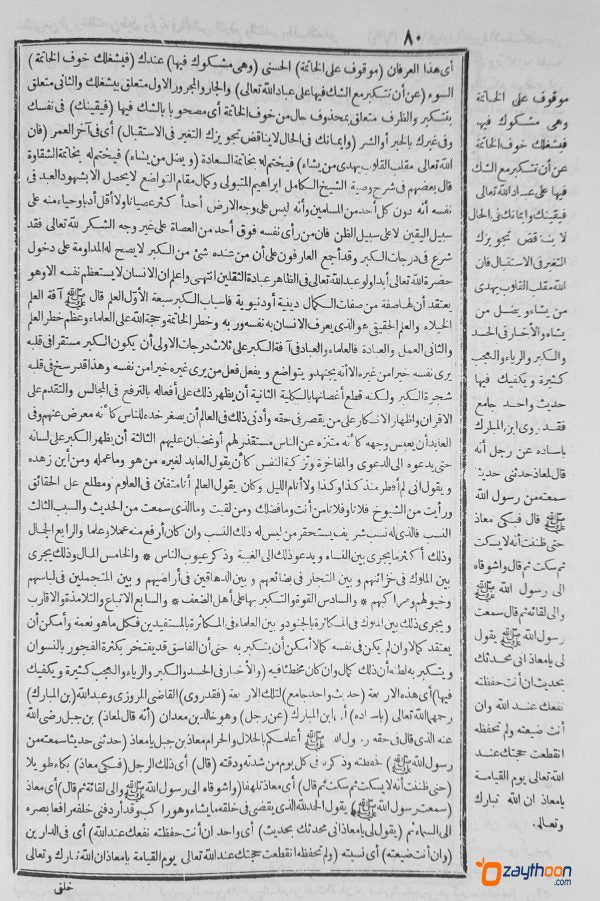 ٨٠
أى هذا العرفان (موقوف على الخاتمة) الحسنى (وهى مشكوك فيها) عندك (فيشغلك خوف الخاتمة)
السوء (عن أن تتكبر مع الشك فيها على عباد الله تعالى) والجار والمجرور الاول متعلق بيشغلك والثانى متعلق
بتتكبر والظرف متعلق بمحذوف حال من خوف الخاتمة أى مصحوبا بالشك فيها (فيقينك) فى نفسك
وفى غيرك بالخير أو الشر (وايمانك فى الحال لا يناقض تجويزك التغير فى الاستقبال) أى فى آخر العمر (فان
الله تعالى مقلب القلوب يهدى من يشاء) فيختم له بخاتمة السعادة (ويضل من يشاء) فيختم له بخاتمة الشقاوة
قال بعضهم فى شرح وصية الشيخ الكامل ابراهيم المتبولى وكمال مقام التواضع لا يحصل الا بشهود العبد فى
نفسه أنه دون كل أحد من المسلمين وأنه ليس على وجه الارض أحدا أكثر عصيانا ولا أقل أدبا وحياء منه على
سبيل اليقين لا على سبيل الظن فان من رأى نفسه فوق أحد من العصاة على غير وجه الشكر لله تعالى فقد
شرع فى درجات الكبر وقد أجمع العارفون على أن من عنده شئ من الكبر لا يصح له المداومة على دخول
حضرة الله تعالى أبدا ولو عبد الله تعالى فى الظاهر عبادة الثقلين انتهى واعلم ان الانسان لا يستعظم نفسه الا وهو
يعتقد أن لها صفة من صفات الكمال دينية أو دنيوية فأسباب الكبر سبعة الأول العلم قال ﷺ آفة العلم
الخيلاء والعلم الحقيقى هو الذى يعرف الانسان به نفسه وربه وخطر الخاتمة وحجة الله على العلماء وعظم خطر العلم
والثانى العمل والعبادة فالعلماء والعباد فى آفة الكبر على ثلاث درجات الاولى أن يكون الكبر مستقرا فى قلبه
يرى نفسه خيرا من غيره الا أنه يجتهد ويتواضع ويفعل فعل من يرى غيره خيرا من نفسه وهذا قد رسخ فى قلبه
شجرة الكبر ولكنه قطع أغصانها بالكلية الثانية أن يظهر ذلك على أفعاله بالترفع فى المجالس والتقدم على
الاقران واظهار الانكار على من يقصر فى حقه وأدنى ذلك فى العالم أن يصغر خده للناس كأنه معرض عنهم وفى
العابد أن يعبس وجهه كأنه متنزه عن الناس مستقذر لهم أو غضبان عليهم الثالثة أن يظهر الكبر على لسانه
حتى يدعوه الى الدعوى والمفاخرة وتزكية النفس كأن يقول العابد لغيره من هو وما عمله ومن أين زهده
و يقول انى لم أفطر منذ كذا وكذا ولا أنام الليل وكان يقول العالم أنا متفنن فى العلوم ومطلع على الحقائق
ورأيت من الشيوخ فلانا وفلانا من أنت وما فضلك ومن لقيت وما الذى سمعت من الحديث والسبب الثالث
النسب فالذى له نسب شريف يستحقر من ليس له ذلك النسب وان كان أرفع منه عملا وعلما والرابع الجمال
وذلك أكثر ما يجرى بين النساء ويدعو ذلك الى الغيبة وذكر عيوب الناس * والخامس المال وذلك يجرى
بين الملوك فى خزائنهم و بين التجار فى بضائعهم و بين الدهاقين فى أراضيهم و بين المتجملين فى لباسهم
وخيولهم ومراكبهم * والسادس القوة والتكبر بها على أهل الضعف * والسابع الاتباع والتلامذة والاقارب
ويجرى ذلك بين الملوك فى المكاثرة بالجنود و بين العلماء فى المكاثرة بالمستفيدين فكل ما هو نعمة وأمكن أن
يعتقد كمالا وان لم يكن فى نفسه كمالا أمكن أن يتكبر به حتى أن الفاسق قد يفتخر بكثرة الفجور بالنسوان
و يتكبر به لظنه أن ذلك كمال وان كان مخطئا فيه (والأخبار فى الحسد والكبر والرياء والعجب كثيرة و يكفيك
فيها) أى هذه الاربعة (حديث واحد جامع) لتلك الاربعة (فقد روى) القاضى المروزى وعبد الله (بن المبارك)
رحمها الله تعالى (باسناده) أى ابن المبارك (عن رجل) وهو خالد بن معدان (أنه قال لمعاذ) بن جبل رضى الله
عنه الذى قال فى حقه رسول الله ﷺ أعلمكم بالحلال والحرام معاذ بن جبل يا معاذ (حدثنى حديثا سمعته من
رسول الله ﷺ) حفظته وذكره فى كل يوم من شدته ودقته (قال) أى ذلك الرجل (فبكى معاذ) بكاء طويلا
(حتى ظننت أنه لا يسكت ثم سكت ثم قال) أى معاذ تلهفا (واشوقاه الى رسول الله ﷺ والى لقائه ثم قال) أى معاذ
(سمعت رسول الله ﷺ) يقول الحمد لله الذى يقضى فى خلقه ما يشاء وهو راكب وقد أردفنى خلفه رافعا بصره
الى السماء ثم (يقول لى يا معاذ انى محدثك بحديث) أى واحد ان (أنت حفظته نفعك عند الله) أى فى الدارين
(وان أنت ضيعته) أى نسيته (ولم تحفظه انقطعت حجتك عند الله تعالى يوم القيامة يا معاذ ان الله تبارك وتعالى
خلق
موقوف على الخاتمة
وهى مشكوك فيها
فيشغلك خوف الخاتمة
عن أن تتكبر مع الشك
فيها على عباد الله تعالى
فيقينك وايمانك فى الحال
لا يناقض تجويزك
التغير فى الاستقبال فان
الله مقلب القلوب يهدى
من يشاء ويضل من
يشاء والأخبار فى الحسد
والكبر والرياء والعجب
كثيرة و يكفيك فيها
حديث واحد جامع
فقد روى ابن المبارك
باسناده عن رجل أنه
قال لمعاذ حدثنى حديثا
سمعته من رسول الله
ﷺ قال فبكى معاذ
حتى ظننت أنه لا يسكت
ثم سكت ثم قال واشوقاه
الى رسول الله ﷺ
والى لقائه ثم قال سمعت
رسول الله ﷺ يقول
لى يا معاذ انى محدثك
بحديث ان أنت حفظته
نفعك عند الله وان
أنت ضيعته ولم تحفظه
انقطعت حجتك عند
الله تعالى يوم القيامة
يا معاذ ان الله تبارك
وتعالى
Ozaythoon
.com